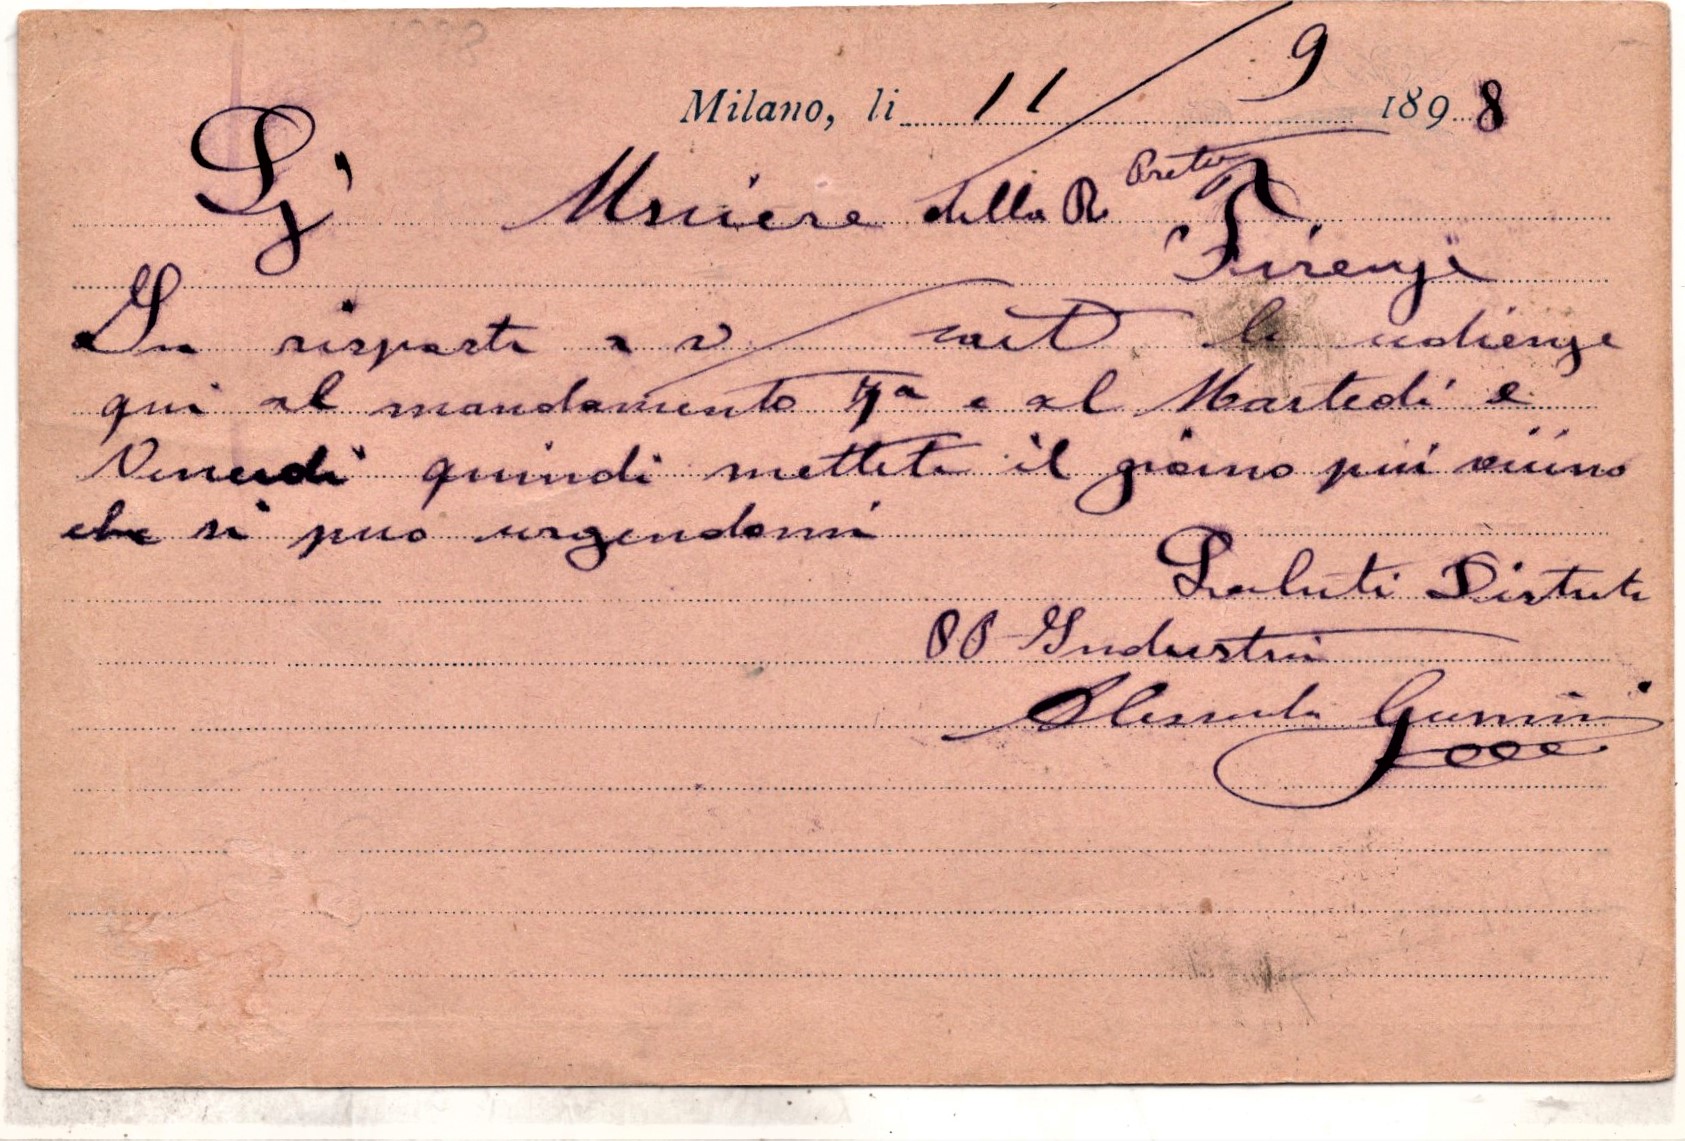 Milano, li 11/9 1898
Sig. Usciere della R Pretu
Firenze
In risposta a v/ cart le udienze
qui al mandamento 7ª e al Martedi e
Venerdi quindi mettete il giorno piú vicino
che si puo urgendomi
Saluti Distinti
PP Industria